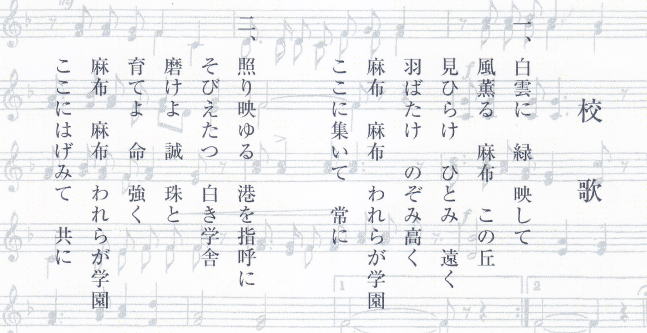 校歌
一、白雲に　緑　映して
風薫る　麻布　この丘
見ひらけ　ひとみ　遠く
羽ばたけ　のぞみ高く
麻布　麻布　われらが学園
ここに集いて　常に
二、照り映ゆる　港を指呼に
そびえたつ　白き学舎
磨けよ　誠　珠と
育てよ　命　強く
麻布　麻布　われらが学園
ここにはげみて　共に